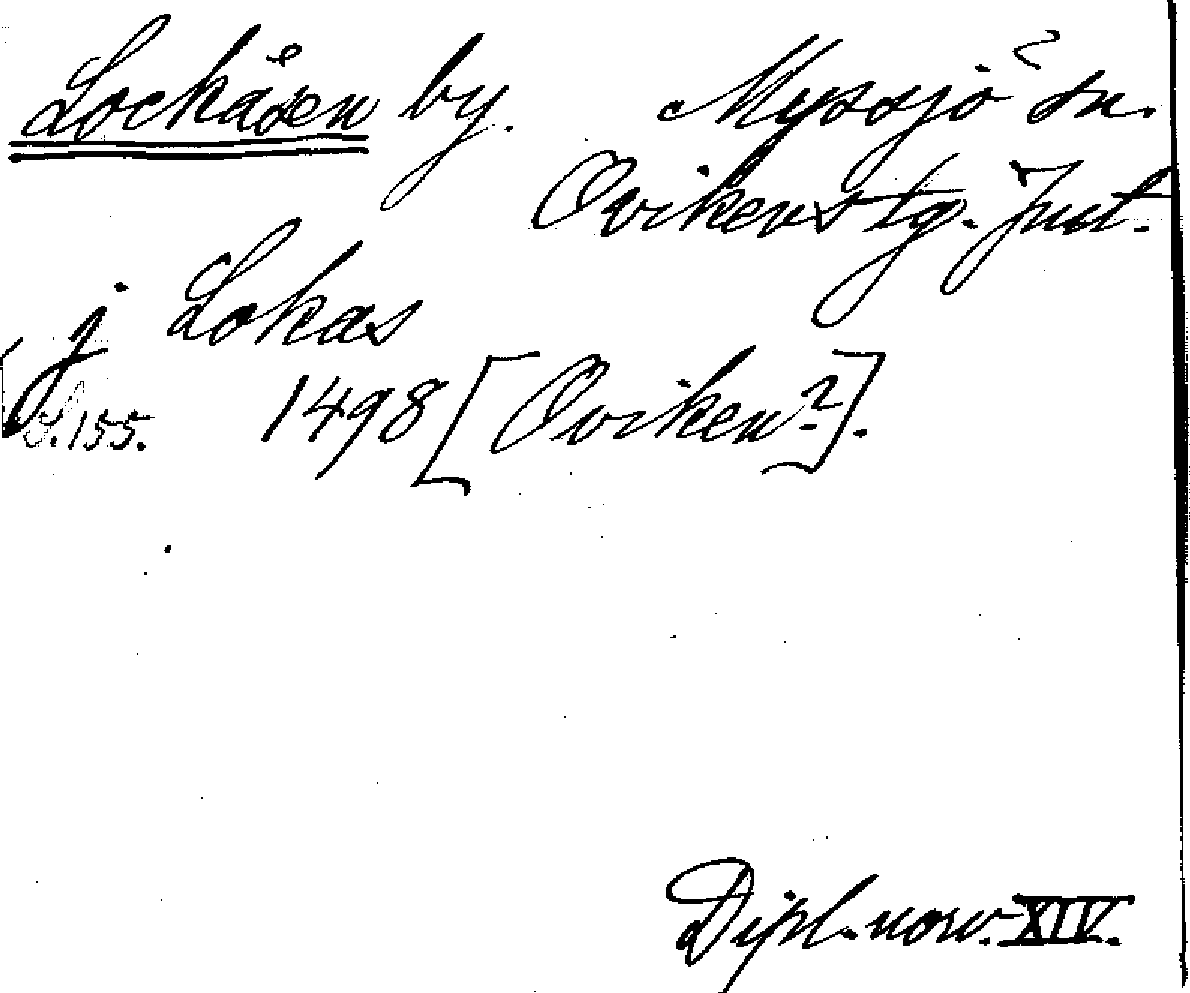 Lockåsen by. Myssjö sn.
Ovikens tg. Jmt.
j Lokas
S. 155. 1498 [Oviken?].
Dipl. norv. XIV.